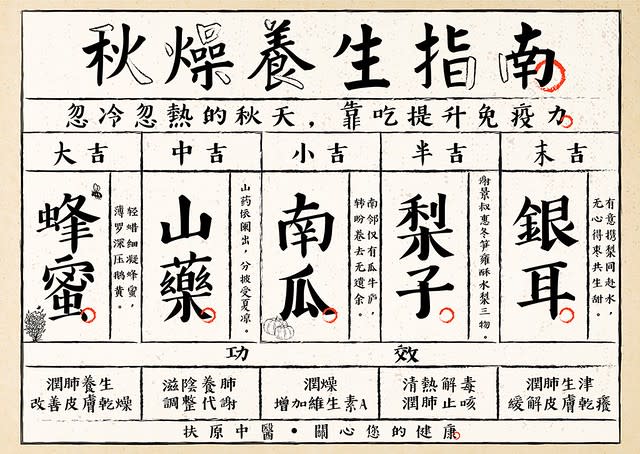 秋燥養生指南
忽冷忽熱的秋天，靠吃提升免疫力
大吉
中吉
小吉
半吉
末吉
蜂蜜
轻蜡细凝蜂蜜，
薄罗深压鹅黄。
山藥
山药依阑出，分披受夏凉。
南瓜
南邻仅有瓜牛庐，
转盼卷去无遗余。
梨子
谢景叔惠冬笋雍酥水梨三物。
銀耳
有意携梨同赴水，
无心得枣共生甜。
功效
潤肺養生
改善皮膚乾燥
滋陰養肺
調整代謝
潤燥
增加維生素A
清熱解毒
潤肺止咳
潤肺生津
緩解皮膚乾癢
扶原中醫•關心您的健康